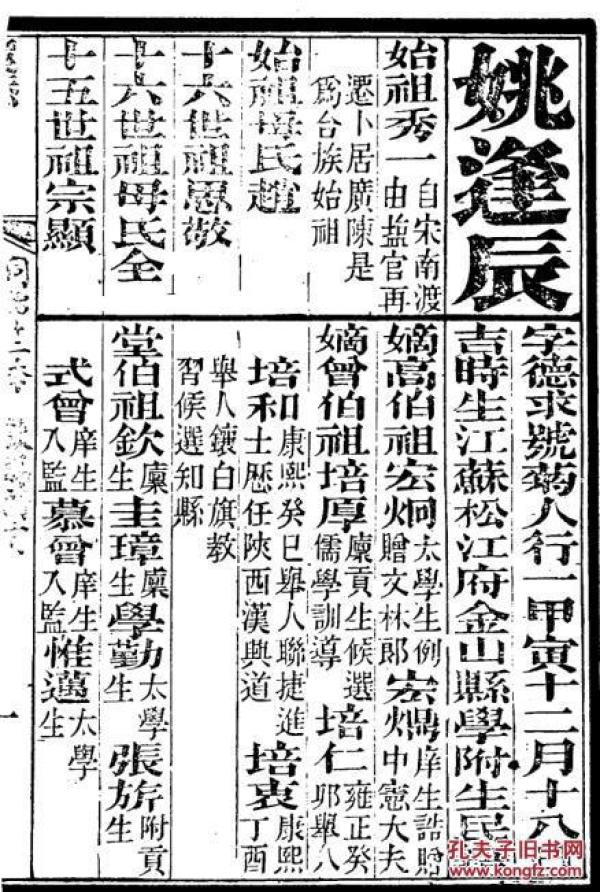 姚逢辰
始祖秀一自宋南渡
由鹽官再
遷卜居廣陳是
爲台族始祖
始祖母氏趙
十六世祖思敬
十六世祖母氏全
十五世祖宗顯
字德求號菊人行一甲寅十二月十八
吉時生江蘇松江府金山縣學附生民
嫡高伯祖宏炯太學生例
贈文林郎宏
庠生誥贈
中憲大夫
嫡曾伯祖培厚廩貢生候選
儒學訓導培仁雍正癸
卯舉人
培和康熙癸巳舉人聯捷進
士歷任陝西漢興道培衷康熙
丁酉
舉人鑲白旗教
習候選知縣
堂伯祖欽廩
生圭璋廩
生學勤太學
生張旂附貢
生
式曾庠生
入監慕曾庠生
入監惟邁太學
生
同治十二
一
孔夫子旧书网
kongfz.com